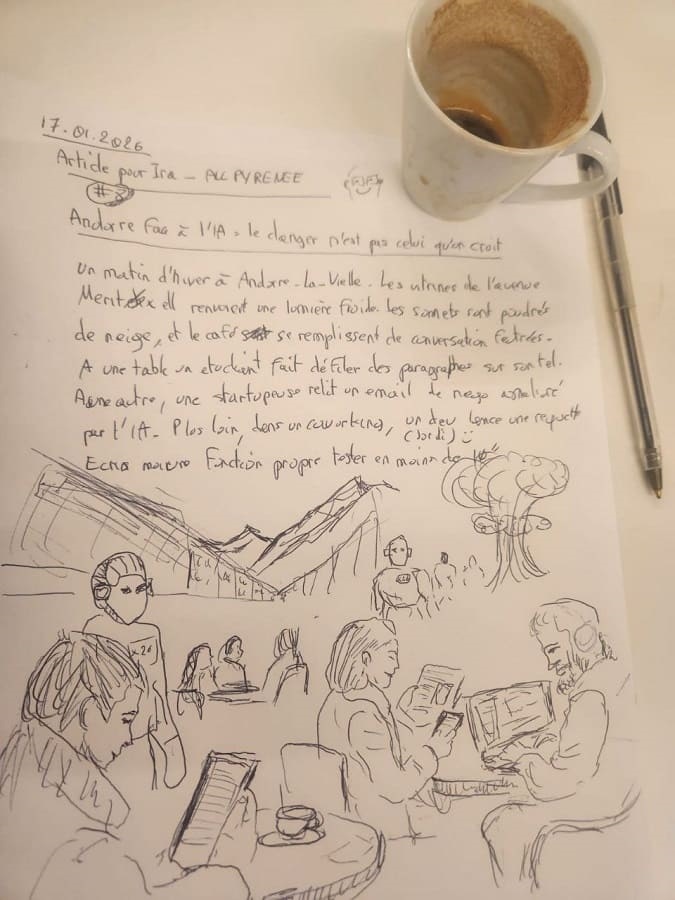 17.01.2026
Article pour Ira - ALL PYRENEE
#3
Andorre Face à l'IA = le danger n'est pas celui qu'on croit
Un matin d'hiver à Andorre-la-Vielle. Les vitrines de l'avenue
Meritxell renvoient une lumière froide. Les sommets sont poudrés
de neige, et le café se remplissent de conversation feutrées.
A une table un etudiant fait défiler des paragraphes sur son tel.
A une autre, une startupeuse relit un email de nego amelioré
par l'IA. Plus loin, dans un coworking, un dev lance une requete
(Jordi)
Ecris moi une fonction propre tester en moins de 10"
x26